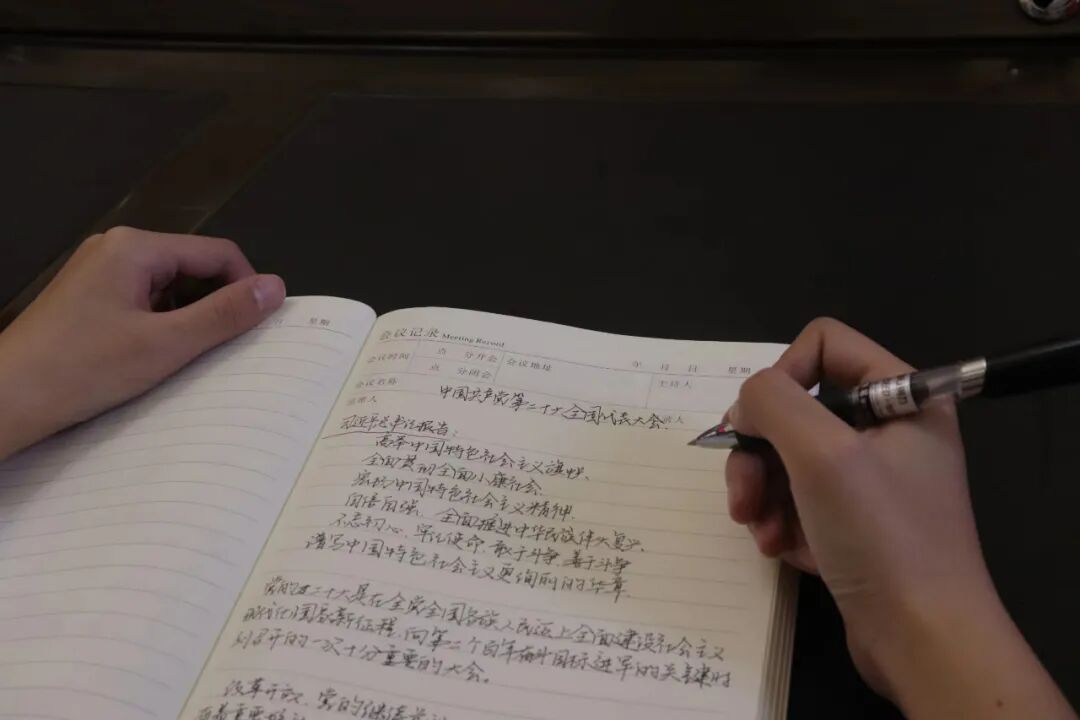 星期
会议记录 Meeting Record
年 月 日 星期
会议时间 点 分开会 会议地址 主持人
点 分闭会
会议名称 中国共产党第二十次全国代表大会
习近平总书记报告：
高举中国特色社会主义旗帜、
全面贯彻全面小康社会、
弘扬中国特色社会主义精神、
自信自强、全面推进中华民族伟大复兴、
不忘初心、牢记使命、敢于斗争、善于斗争
谱写中国特色社会主义更绚丽的华章
党的二十大是在全党全国各族人民迈上全面建设社会主义
现代化国家新征程、向第二个百年奋斗目标进军的关键时
刻召开的一次十分重要的大会。
改革开放、党的